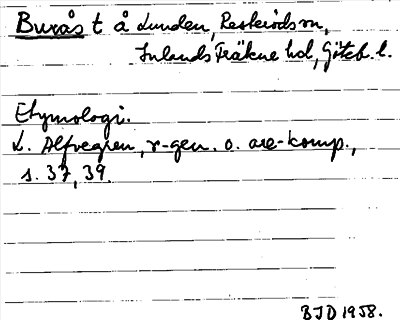 Burås t å Lunden, Resteröds sn,
Inlands Fräkne hd, Göteb. l.
Etymologi.
L. Alfvegren, r-gen. o. are-komp.,
s. 37, 39.
BJD 1958.